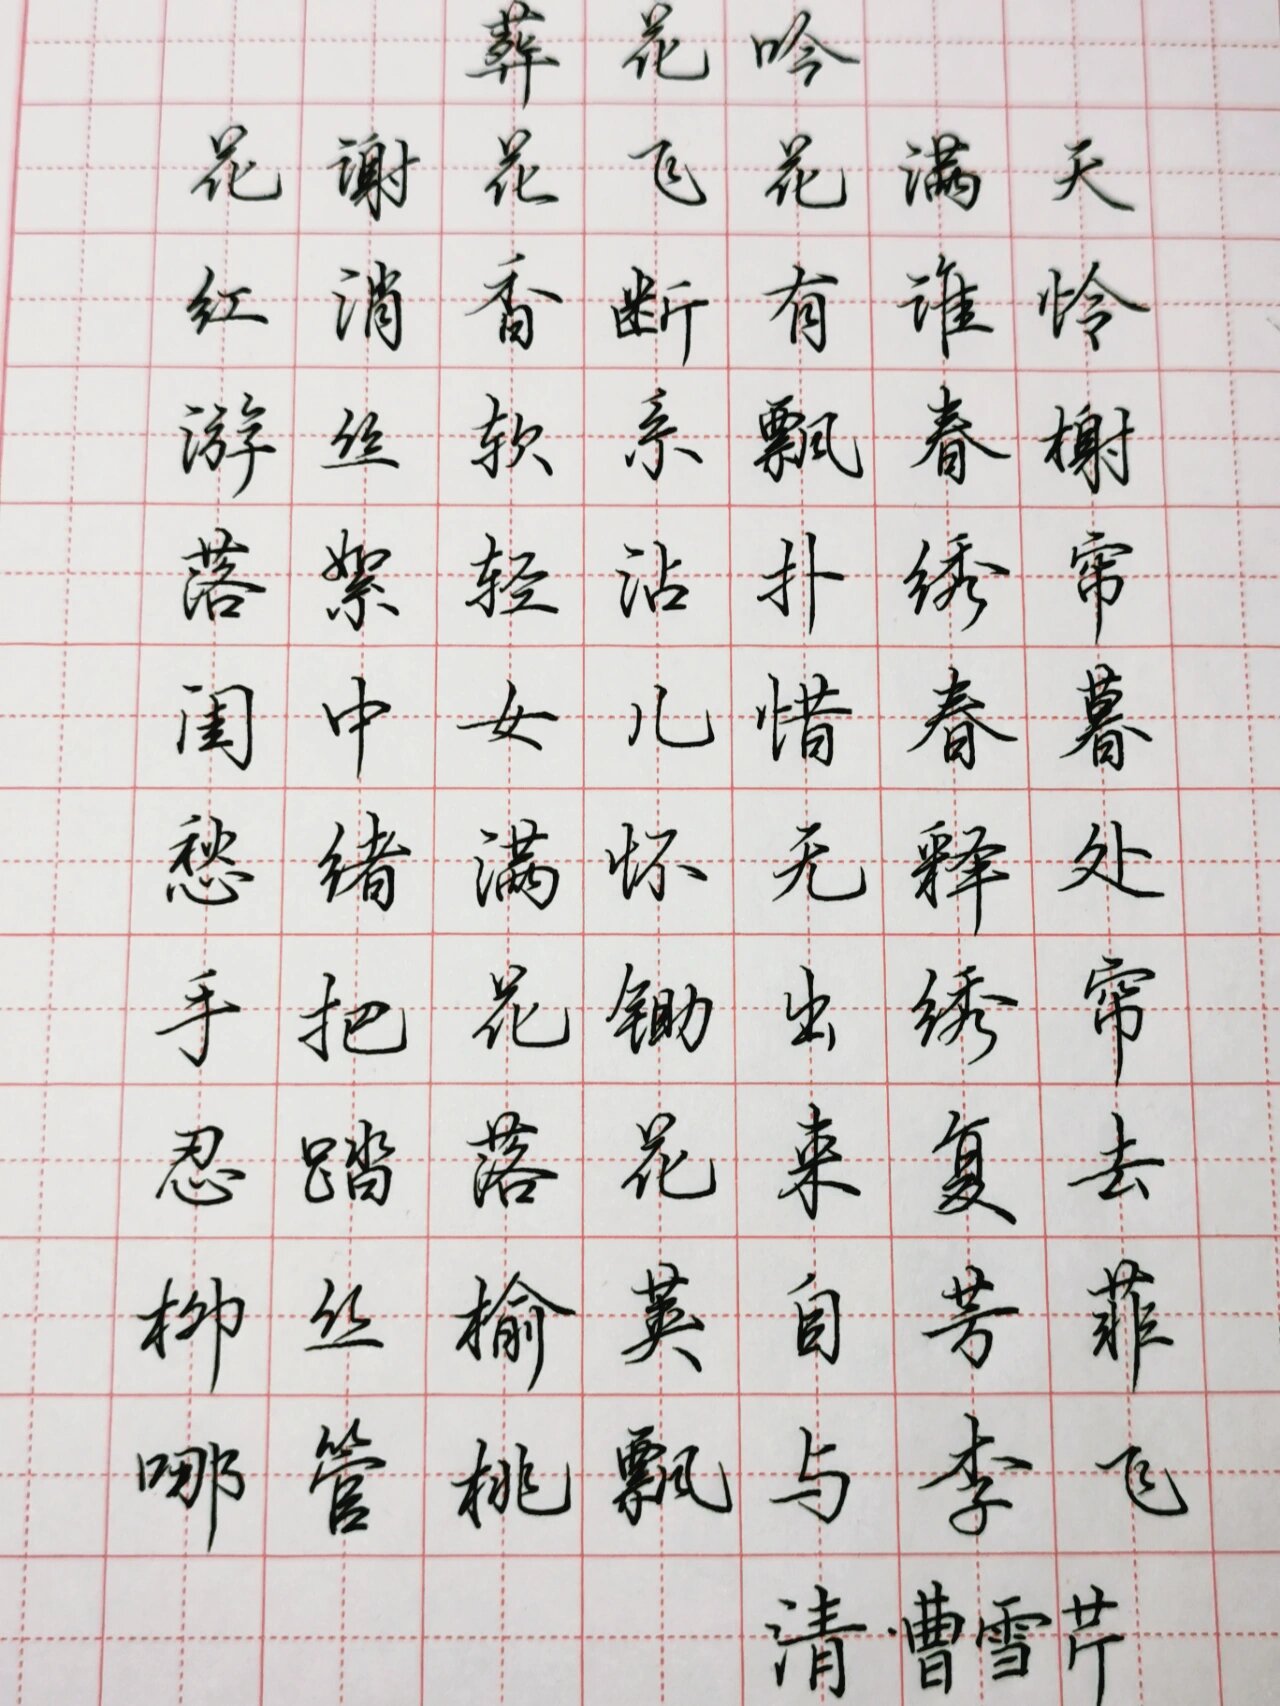 葬花吟
花谢花飞花满天
红消香断有谁怜
游丝软系飘春榭
落絮轻沾扑绣帘
闺中女儿惜春暮
愁绪满怀无释处
手把花锄出绣帘
忍踏落花来复去
柳丝榆英自芳菲
哪管桃飘与李飞
清·曹雪芹